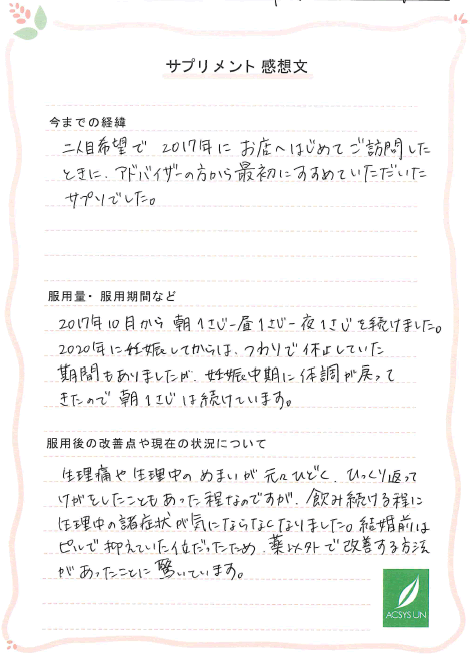 サプリメント 感想文
今までの経緯
二人目希望で 2017年に お店へはじめて ご訪問した
ときに、アドバイザーの方から最初にすすめていただいた
サプリでした。
服用量・服用期間など
2017年10月から 朝1さじ-昼1さじ-夜1さじを続けました。
2020年に妊娠してからは、つわりで休止していた
期間もありましたが、妊娠中期に体調が戻って
きたので 朝1さじは続けています。
服用後の改善点や現在の状況について
生理痛や生理中の めまいが 元々ひどく、ひっくり返って
けがをしたこともあった程なのですが、飲み続ける程に
生理中の諸症状が気にならなくなりました。結婚前は
ピルで抑えていた位だったため、薬以外で改善する方法
があったことに驚いています。
ACSYS UN